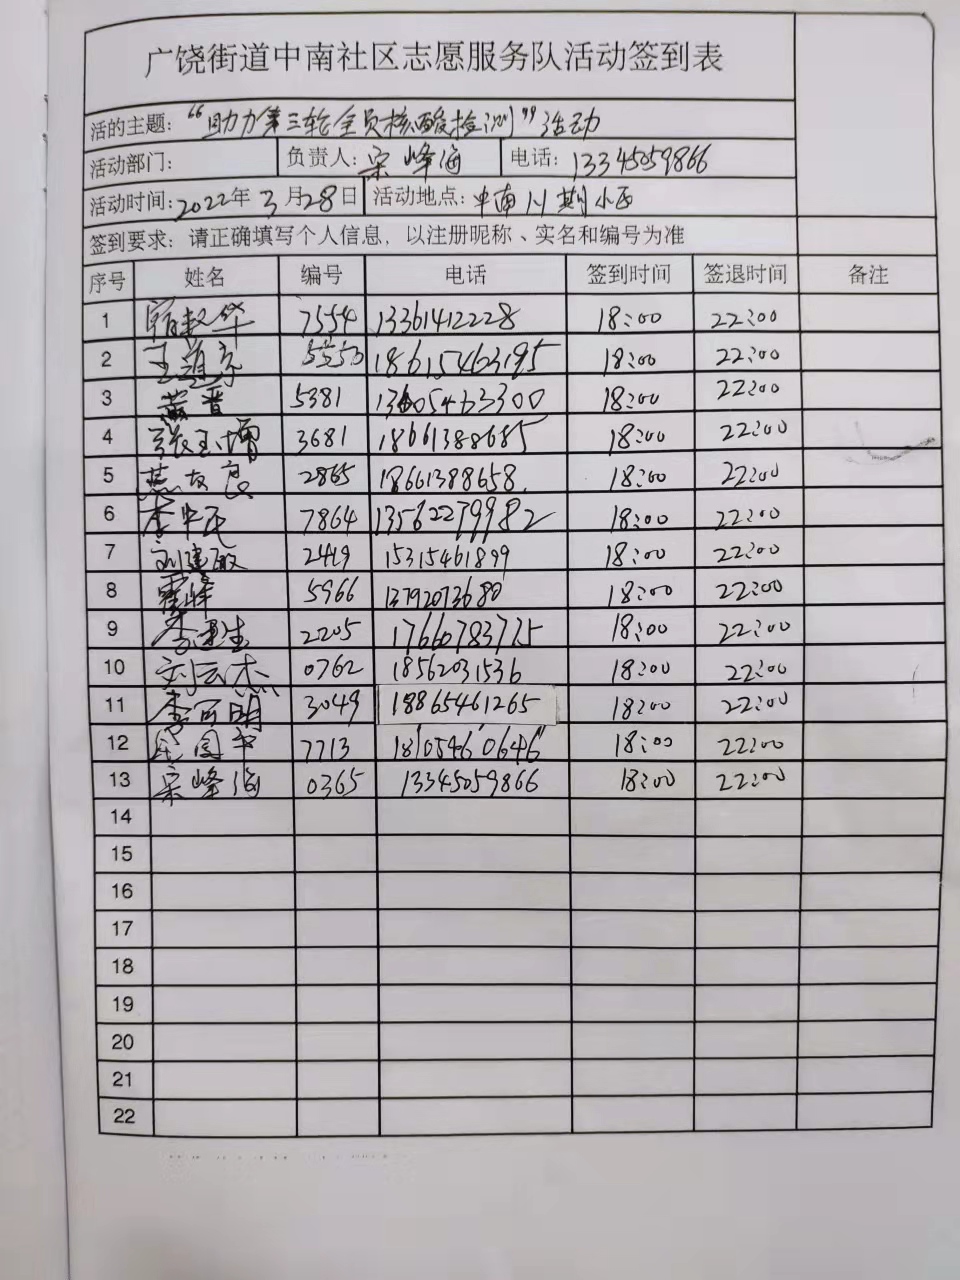 广饶街道中南社区志愿服务队活动签到表
活的主题：“助力第三轮全员核酸检测”活动
活动部门： 负责人：宋峰海 电话：13345059866
活动时间：2022年3月28日 活动地点：中南 期小区
签到要求：请正确填写个人信息，以注册昵称、实名和编号为准
序号 姓名 编号 电话 签到时间 签退时间 备注
1 7554 13361412228 18:00 22:00
2 王 5550 18615463195 18:00 22:00
3 燕晋 5381 13605463300 18:00 22:00
4 张玉增 3681 18661388685 18:00 22:00
5 燕友良 2865 18661388658 18:00 22:00
6 李中民 7864 13562279982 18:00 22:00
7 刘建敏 2419 15315461899 18:00 22:00
8 霍峰 5966 13792073680 18:00 22:00
9 李 生 2205 17660783775 18:00 22:00
10 刘云杰 0762 18562031536 18:00 22:00
11 李 明 3049 18865461265 18:00 22:00
12 国 7713 18105460646 18:00 22:00
13 宋峰海 0365 13345059866 18:00 22:00
14
15
16
17
18
19
20
21
22